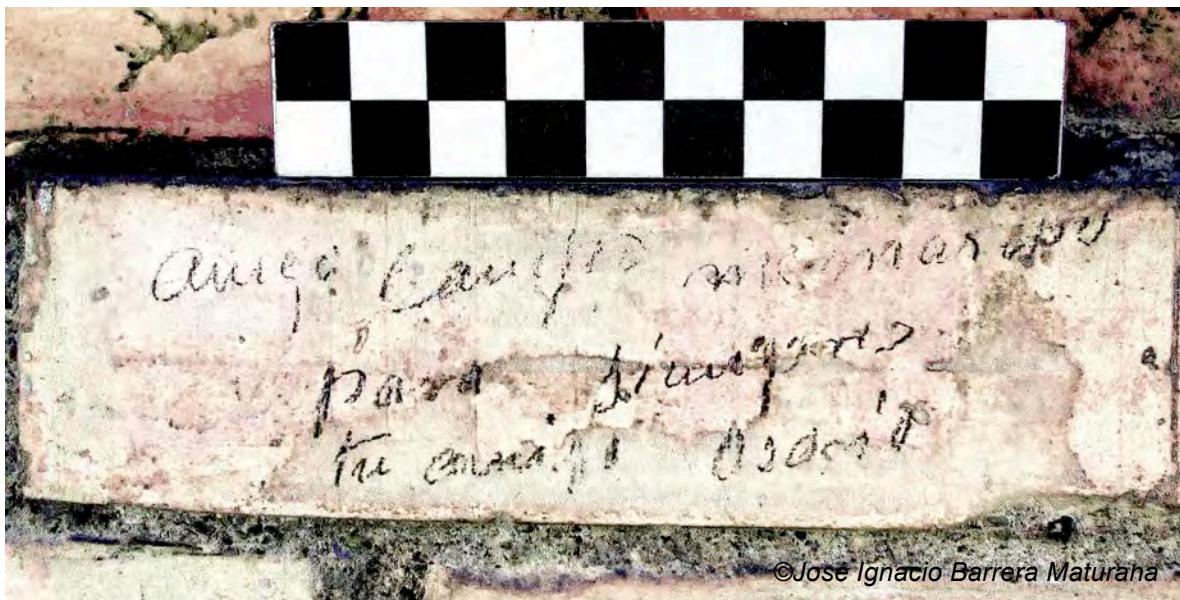 amigo Campos me marcho
para siempre
tu amigo Osorio
©José Ignacio Barrera Maturana